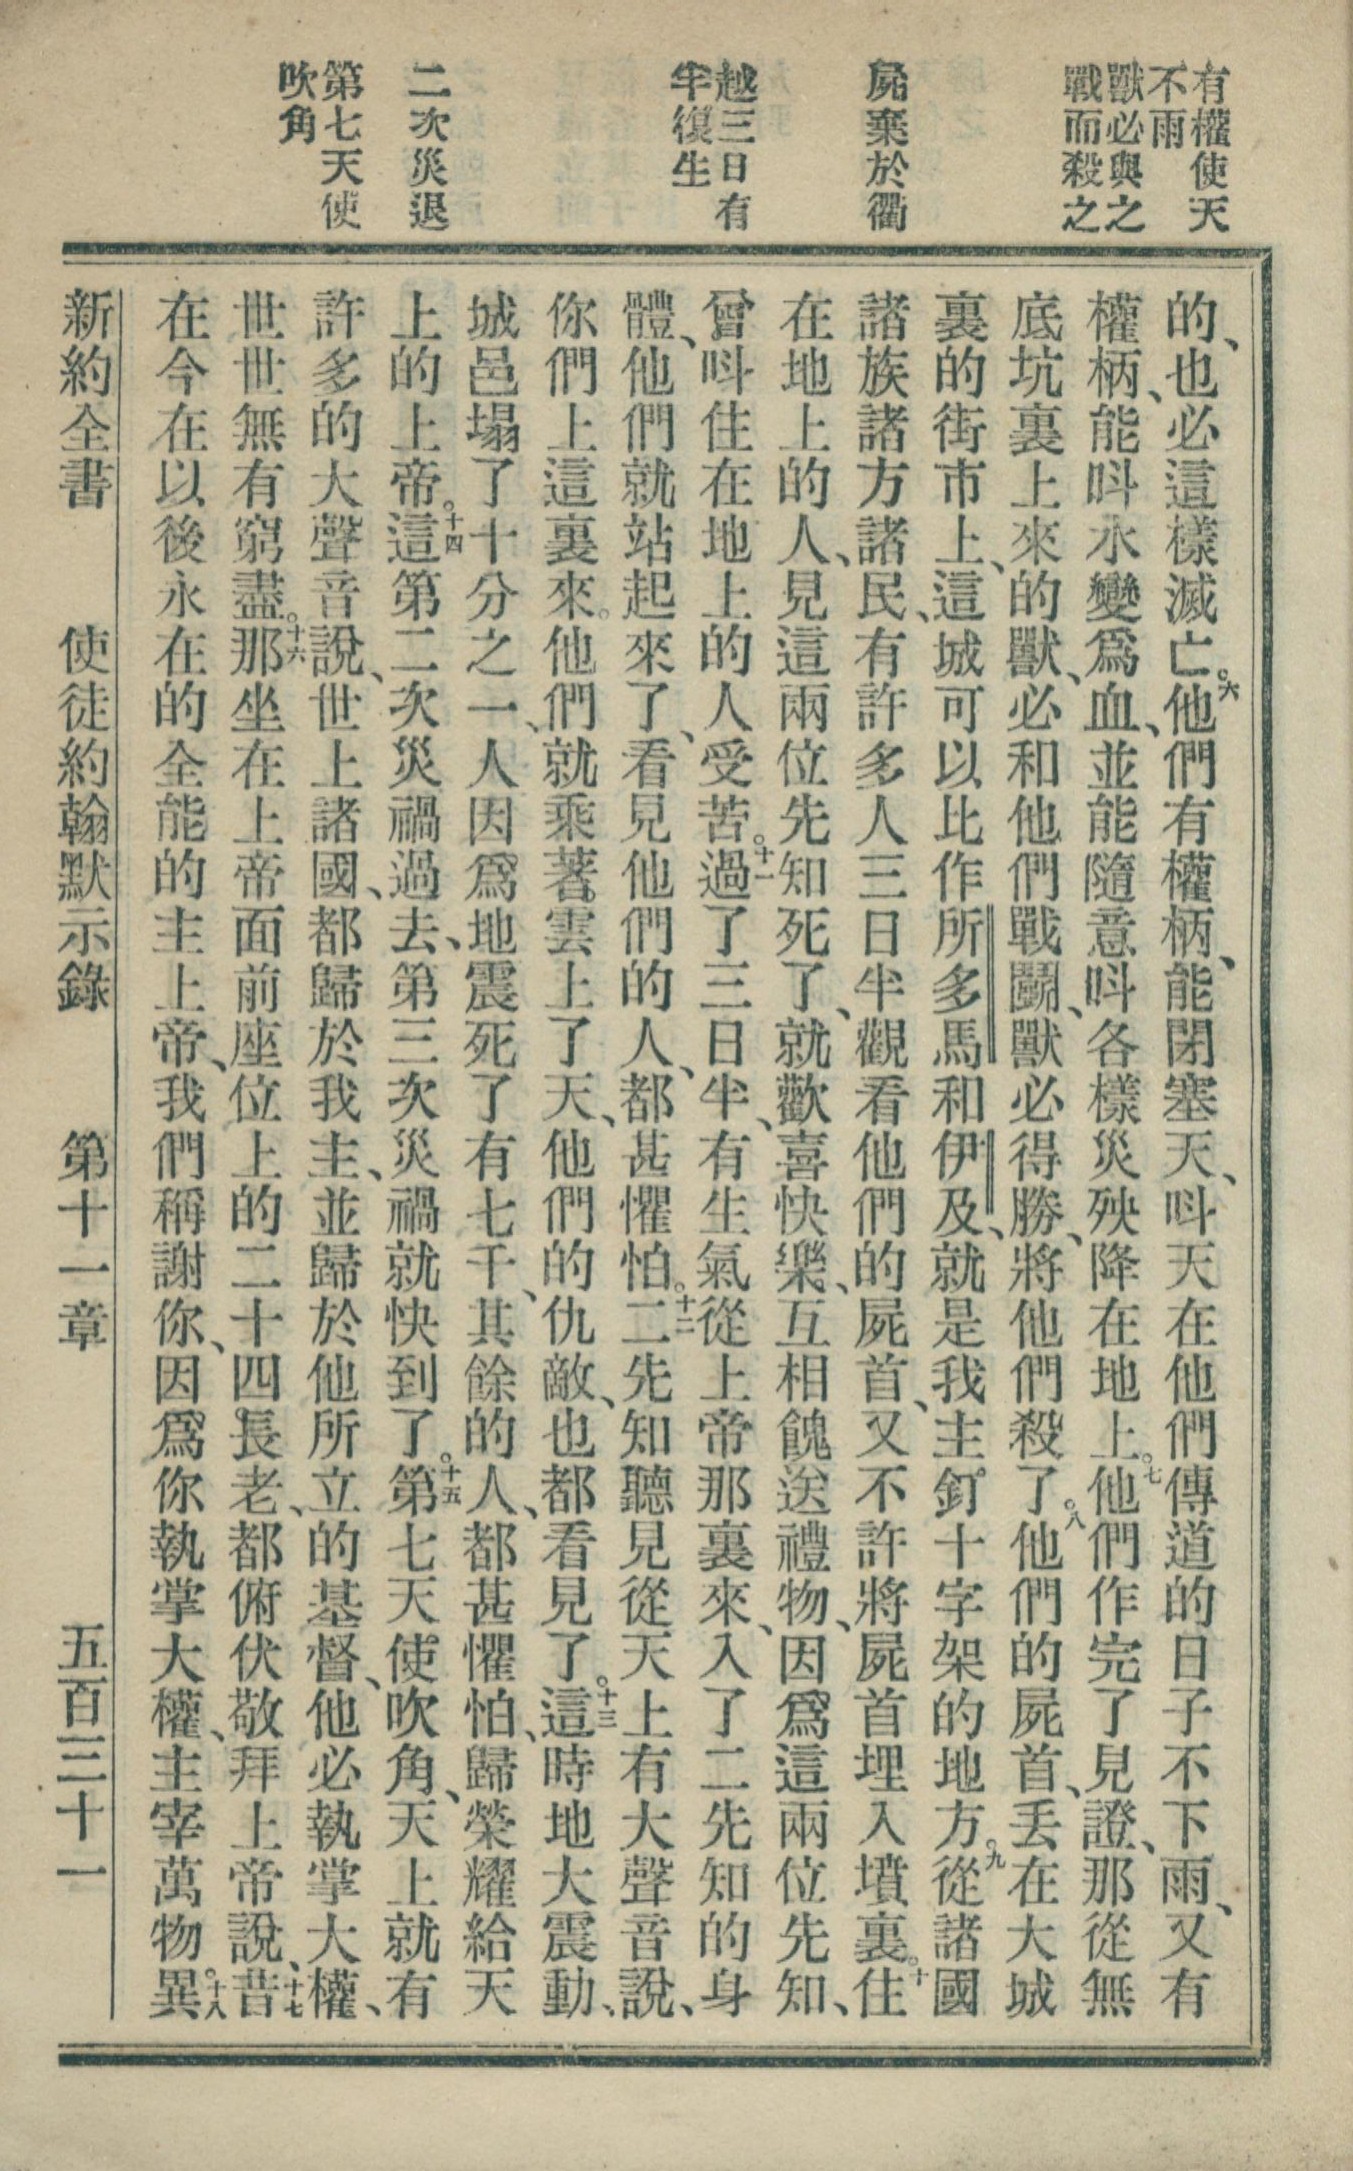 有權使天
不雨
獸必與之
戰而殺之
屍棄於衢
越三日有
半復生
二次災退
第七天使
吹角
的、也必這樣滅亡。六他們有權柄、能閉塞天、呌天在他們傳道的日子不下雨、又有
權柄、能呌水變爲血、並能隨意呌各樣災殃降在地上。七他們作完了見證、那從無
底坑裏上來的獸、必和他們戰鬭、獸必得勝、將他們殺了。八他們的屍首、丟在大城
裏的街市上、這城可以比作所多馬和伊及、就是我主釘十字架的地方。九從諸國
諸族諸方諸民、有許多人三日半觀看他們的屍首、又不許將屍首埋入墳裏。十住
在地上的人、見這兩位先知死了、就歡喜快樂、互相餽送禮物、因爲這兩位先知、
曾呌住在地上的人受苦。十一過了三日半、有生氣從上帝那裏來、入了二先知的身
體、他們就站起來了、看見他們的人、都甚懼怕。十二二先知聽見從天上有大聲音說、
你們上這裏來。他們就乘著雲上了天、他們的仇敵、也都看見了。十三這時地大震動、
城邑塌了十分之一、人因爲地震死了有七千、其餘的人、都甚懼怕、歸榮耀給天
上的上帝。十四這第二次災禍過去、第三次災禍就快到了。十五第七天使吹角、天上就有
許多的大聲音說、世上諸國、都歸於我主、並歸於他所立的基督、他必執掌大權、
世世無有窮盡。十六那坐在上帝面前座位上的二十四長老、都俯伏敬拜上帝說、十七昔
在今在以後永在的全能的主上帝、我們稱謝你、因爲你執掌大權、主宰萬物。十八異
新約全書 使徒約翰默示錄 第十一章 五百三十一